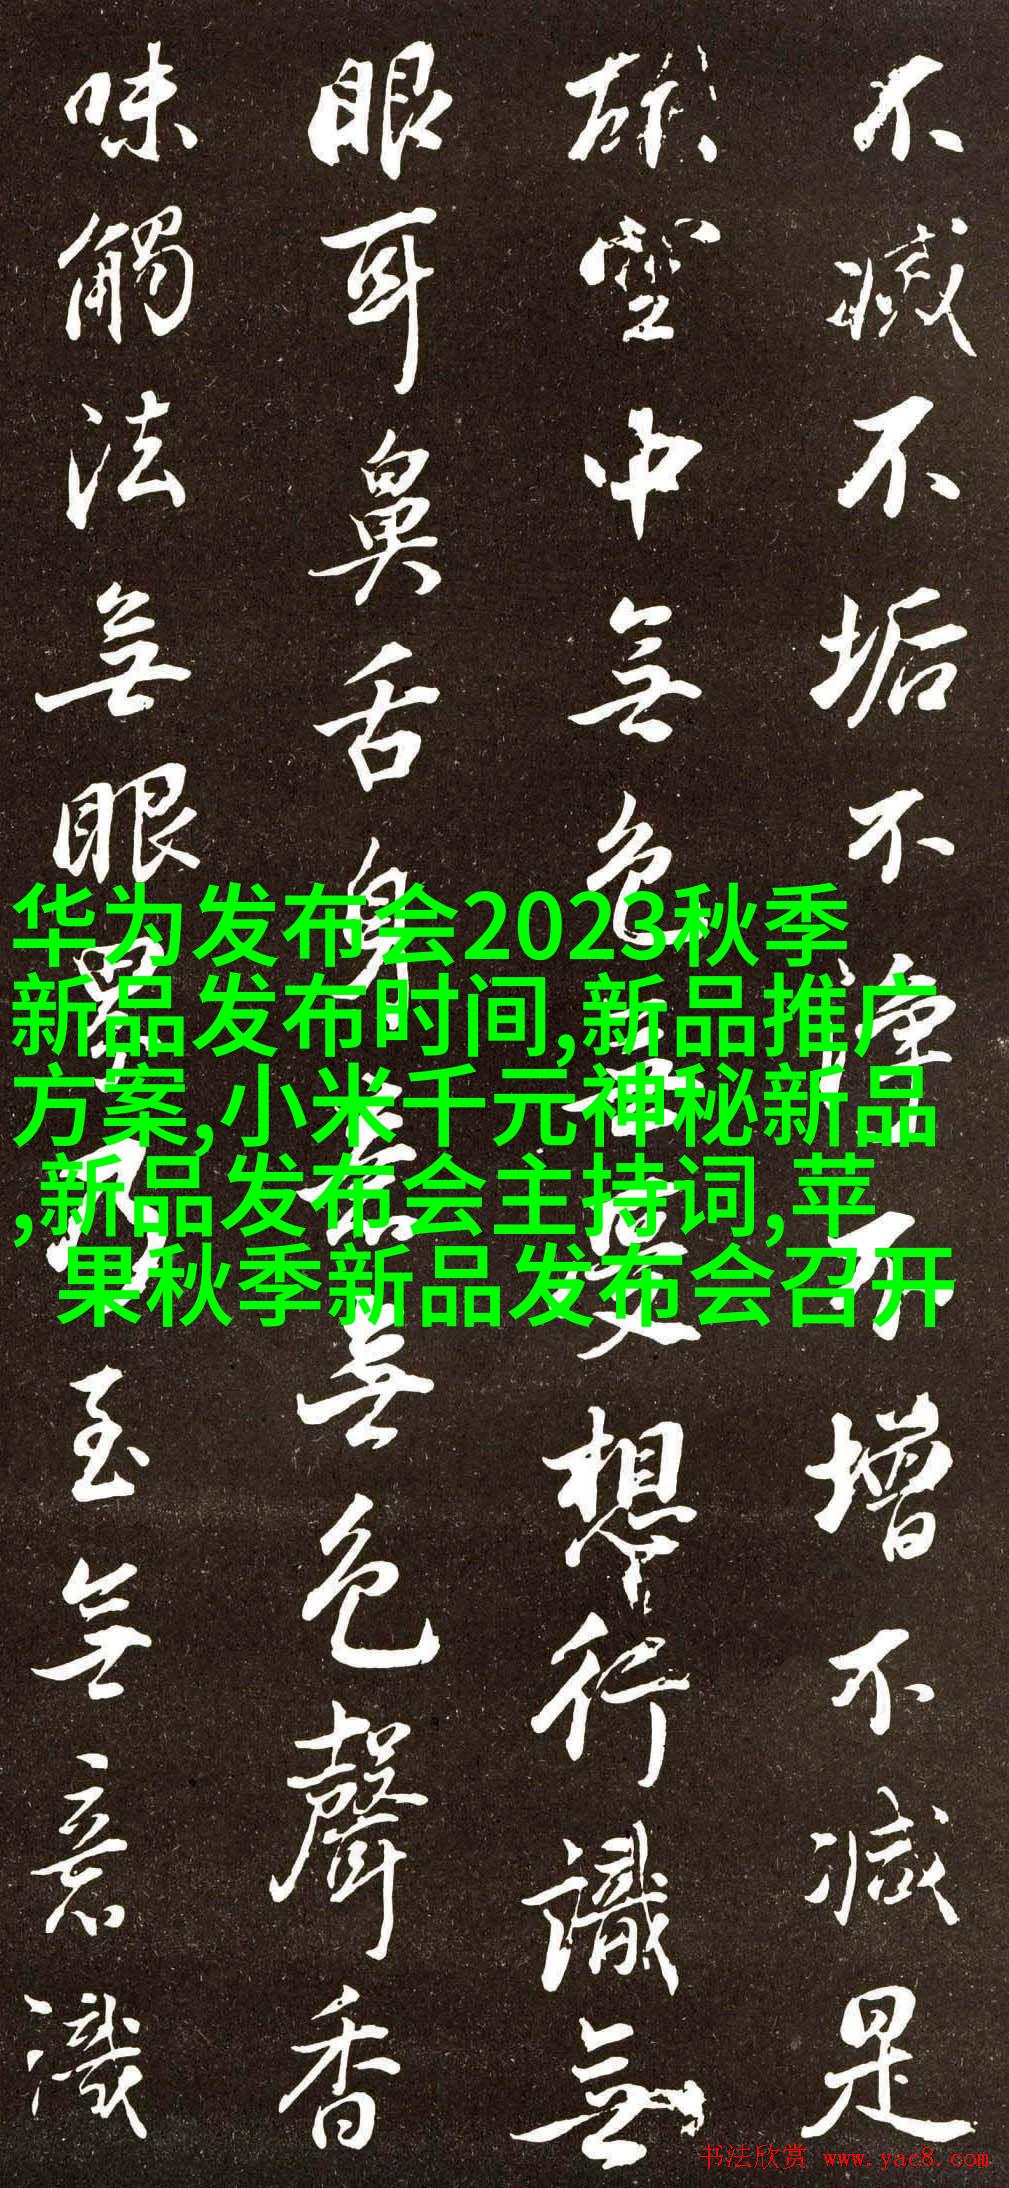 不滅不垢不淨不增不減是
故空中無色無受想行識無
眼耳鼻舌身意無色聲香
味觸法無眼界乃至無意識
华为发布会2023秋季
新品发布时间,新品推广
方案,小米千元神秘新品
,新品发布会主持词,苹
果秋季新品发布会召开
书法欣赏 www.yac8.com